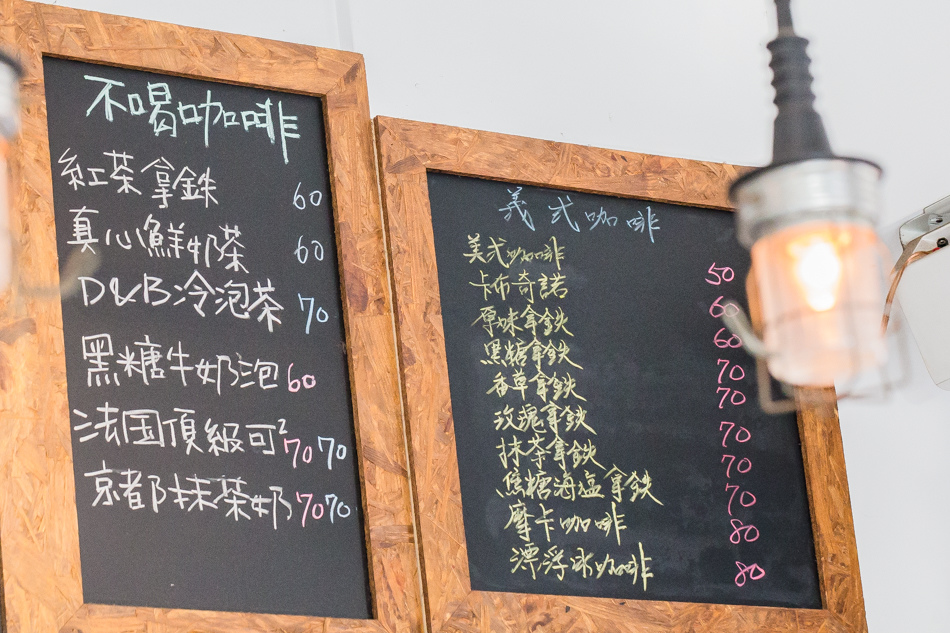 不喝咖啡
紅茶拿鉄 60
真心鮮奶茶 60
D&B冷泡茶 70
黑糖牛奶泡 60
法国頂級可² 70 70
京都抹茶奶 70 70
義式咖啡
美式咖啡 50
卡布奇諾 60
原味拿鉄 60
黑糖拿鉄 70
香草拿鉄 70
玫瑰拿鉄 70
抹茶拿鉄 70
焦糖海塩拿鉄 70
摩卡咖啡 80
漂浮冰咖啡 80